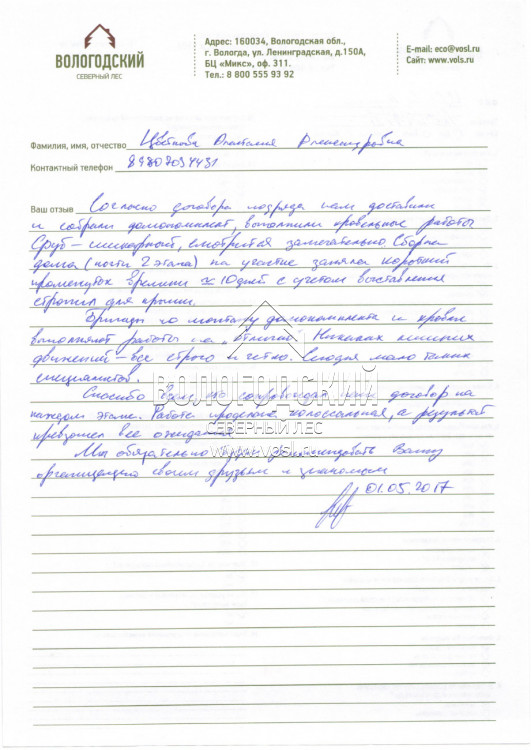 ВОЛОГОДСКИЙ
СЕВЕРНЫЙ ЛЕС
Адрес: 160034, Вологодская обл.,
г. Вологда, ул. Ленинградская, д.150А,
БЦ «Микс», оф. 311.
Тел.: 8 800 555 93 92
E-mail: eco@vosl.ru
Сайт: www.vols.ru
Фамилия, имя, отчество Цветкова
Контактный телефон 89807034431
Ваш отзыв Согласно договора подряда нам доставили
и собрали домокомплект, выполнили кровельные работы
Сруб - шикарный, смотрится замечательно. Сборка
дома (почти 2 этажа) на участке заняла короткий
промежуток времени ≈ 10 дней с учетом выставления
стропил для крыши.
Бригады по монтажу домокомплекта и кровли
выполняют работы на "Отлично" Никаких лишних
движений - все строго и четко. Сегодня мало таких
специалистов.
Спасибо сопровождал наш договор на
каждом этапе. Работа проделана колоссальная, а результат
превзошел все ожидания
Мы обязательно будем рекомендовать Вашу
организацию своим друзьям и знакомым
01.05.2017
ВОЛОГОДСКИЙ
СЕВЕРНЫЙ ЛЕС
www.vosl.ru
ВОЛОГОДСКИЙ
СЕВЕРНЫЙ ЛЕС
www.vosl.ru